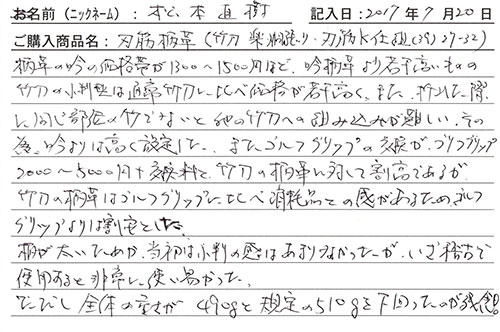 お名前（ニックネーム）：松本直樹　記入日：2017年7月20日
ご購入商品名：刃筋柄革（竹刀
柄革の今の価格帯が1300〜1500円ほど、吟柄革より若干高いもの
竹刀の小判型は通常竹刀に比べ価格が若干高く、また、折れた際
に同じ部位の竹でないと他の竹刀への組み込みが難しい、その
為、吟よりは高く設定した。またゴルフグリップの交換が、ゴルフグリップ
2000〜5000円+交換料と、竹刀の柄革に対して割高であるが
竹刀の柄革はゴルフグリップに比べ消耗品との感があるため、ゴルフ
グリップよりは割安とした。
柄が太いためか、当初は小判の感はあまりなかったが、いざ稽古で
使用すると非常に使い易かった。
ただし全体の重さが490gと規定の510gを下回ったのが残念!